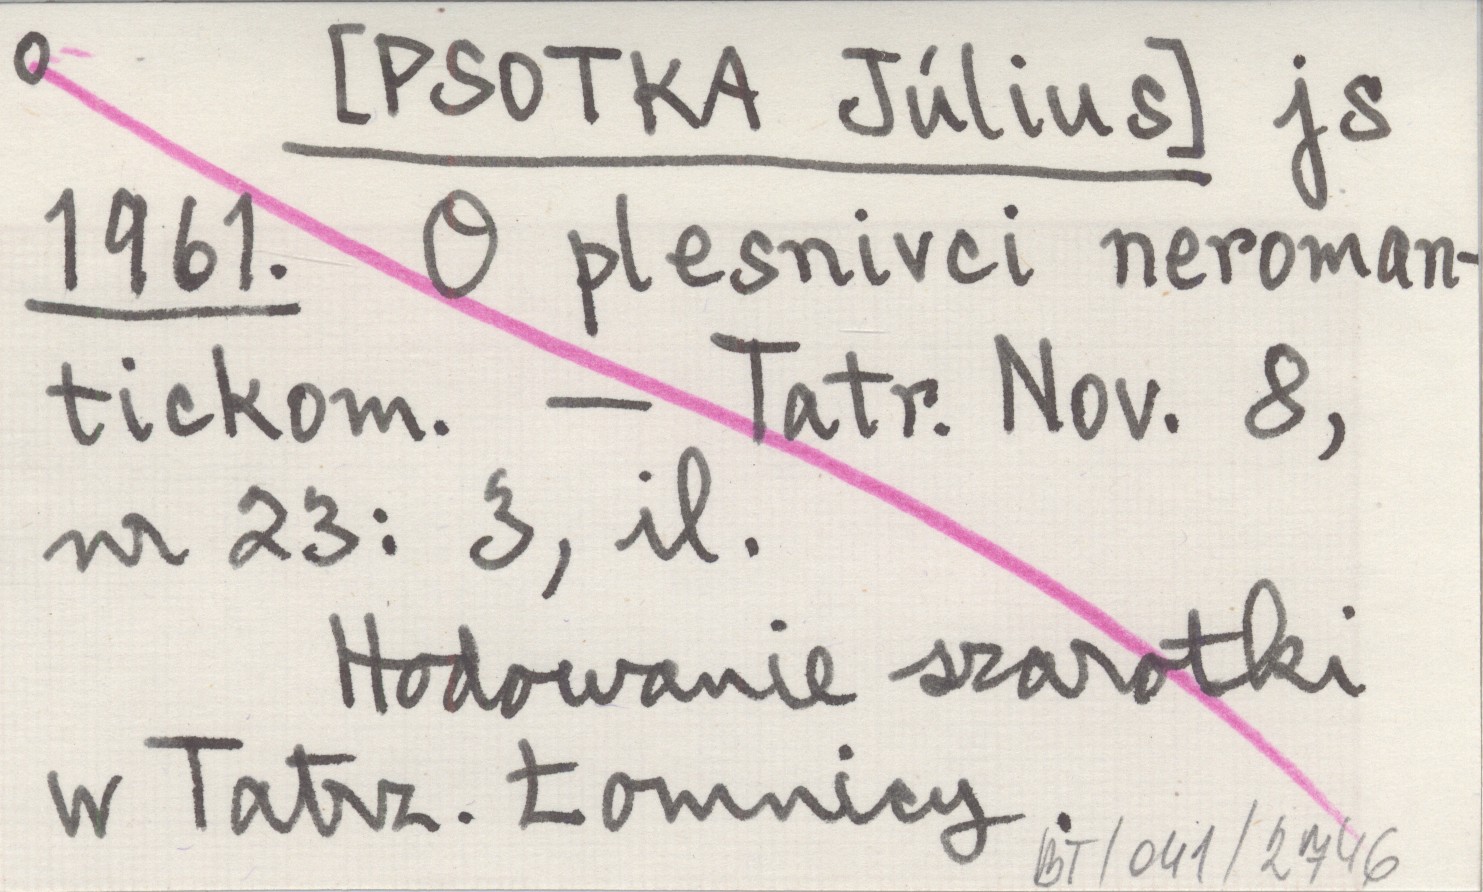 O [PSOTKA Július] js
1961. O plesnivci neroman-
tickom. — Tatr. Nov. 8,
nr 23: 3, il.
Hodowanie szarotki
w Tatrz. Łomnicy.
BT/041/2746